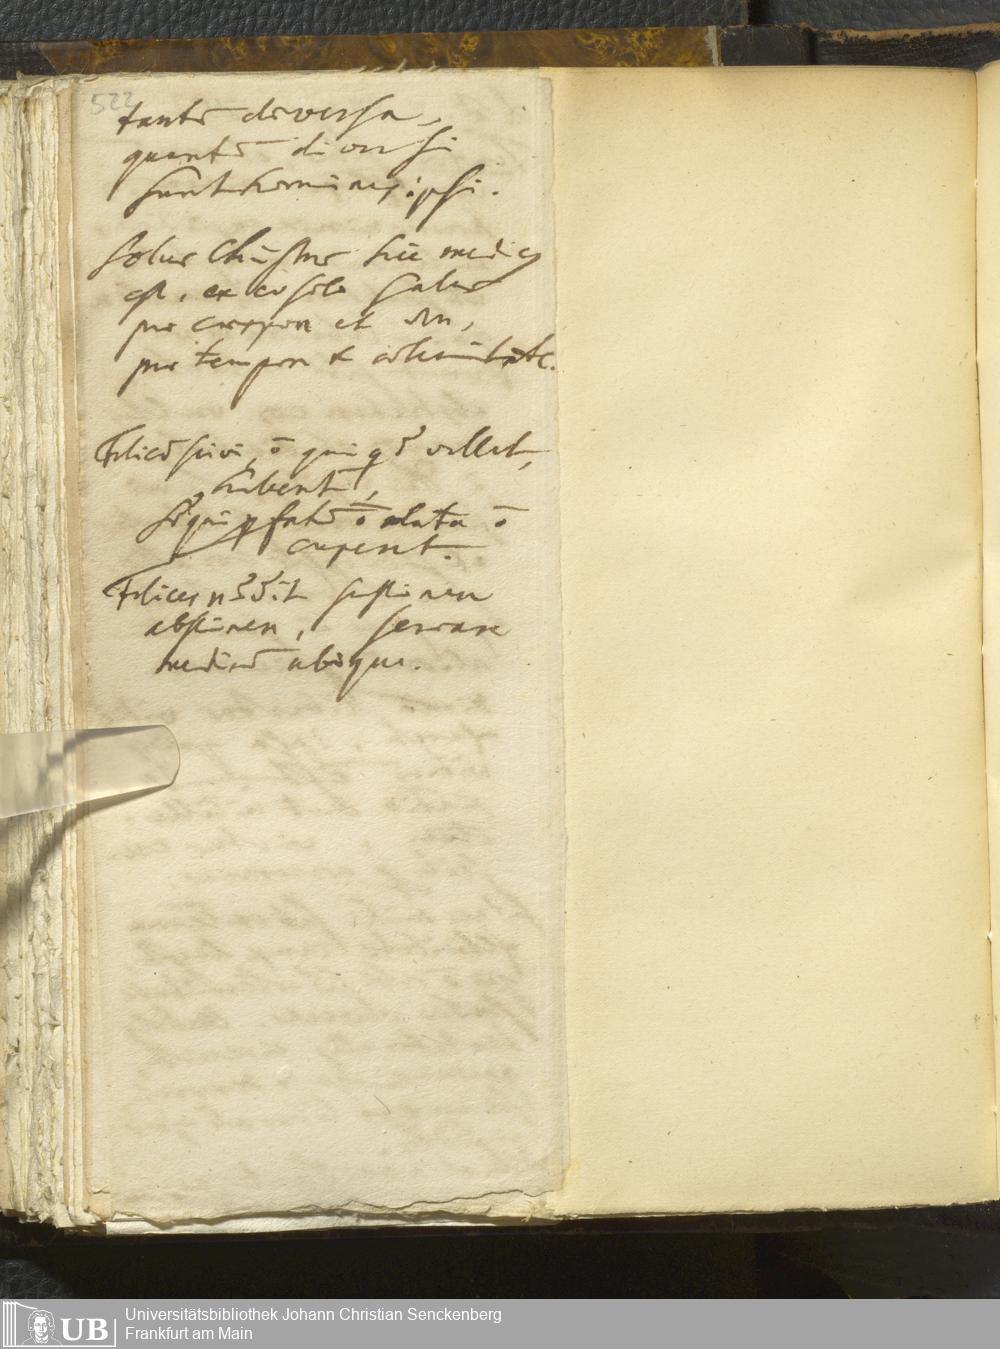 522
tantū diversa,
quantū diversi
sunt homines ipsi.
Solus Christus hic medicus
est, ex eo solo salus
pro corpore et
pro tempore & aeternitate.
Felices scivi, ō qui qd vellent,
haberent,
Sed qui fatū ō data ō
cuperent.
Felices sustinere
abstinere, servare
mediū ubique.
UB
Universitätsbibliothek Johann Christian Senckenberg
Frankfurt am Main